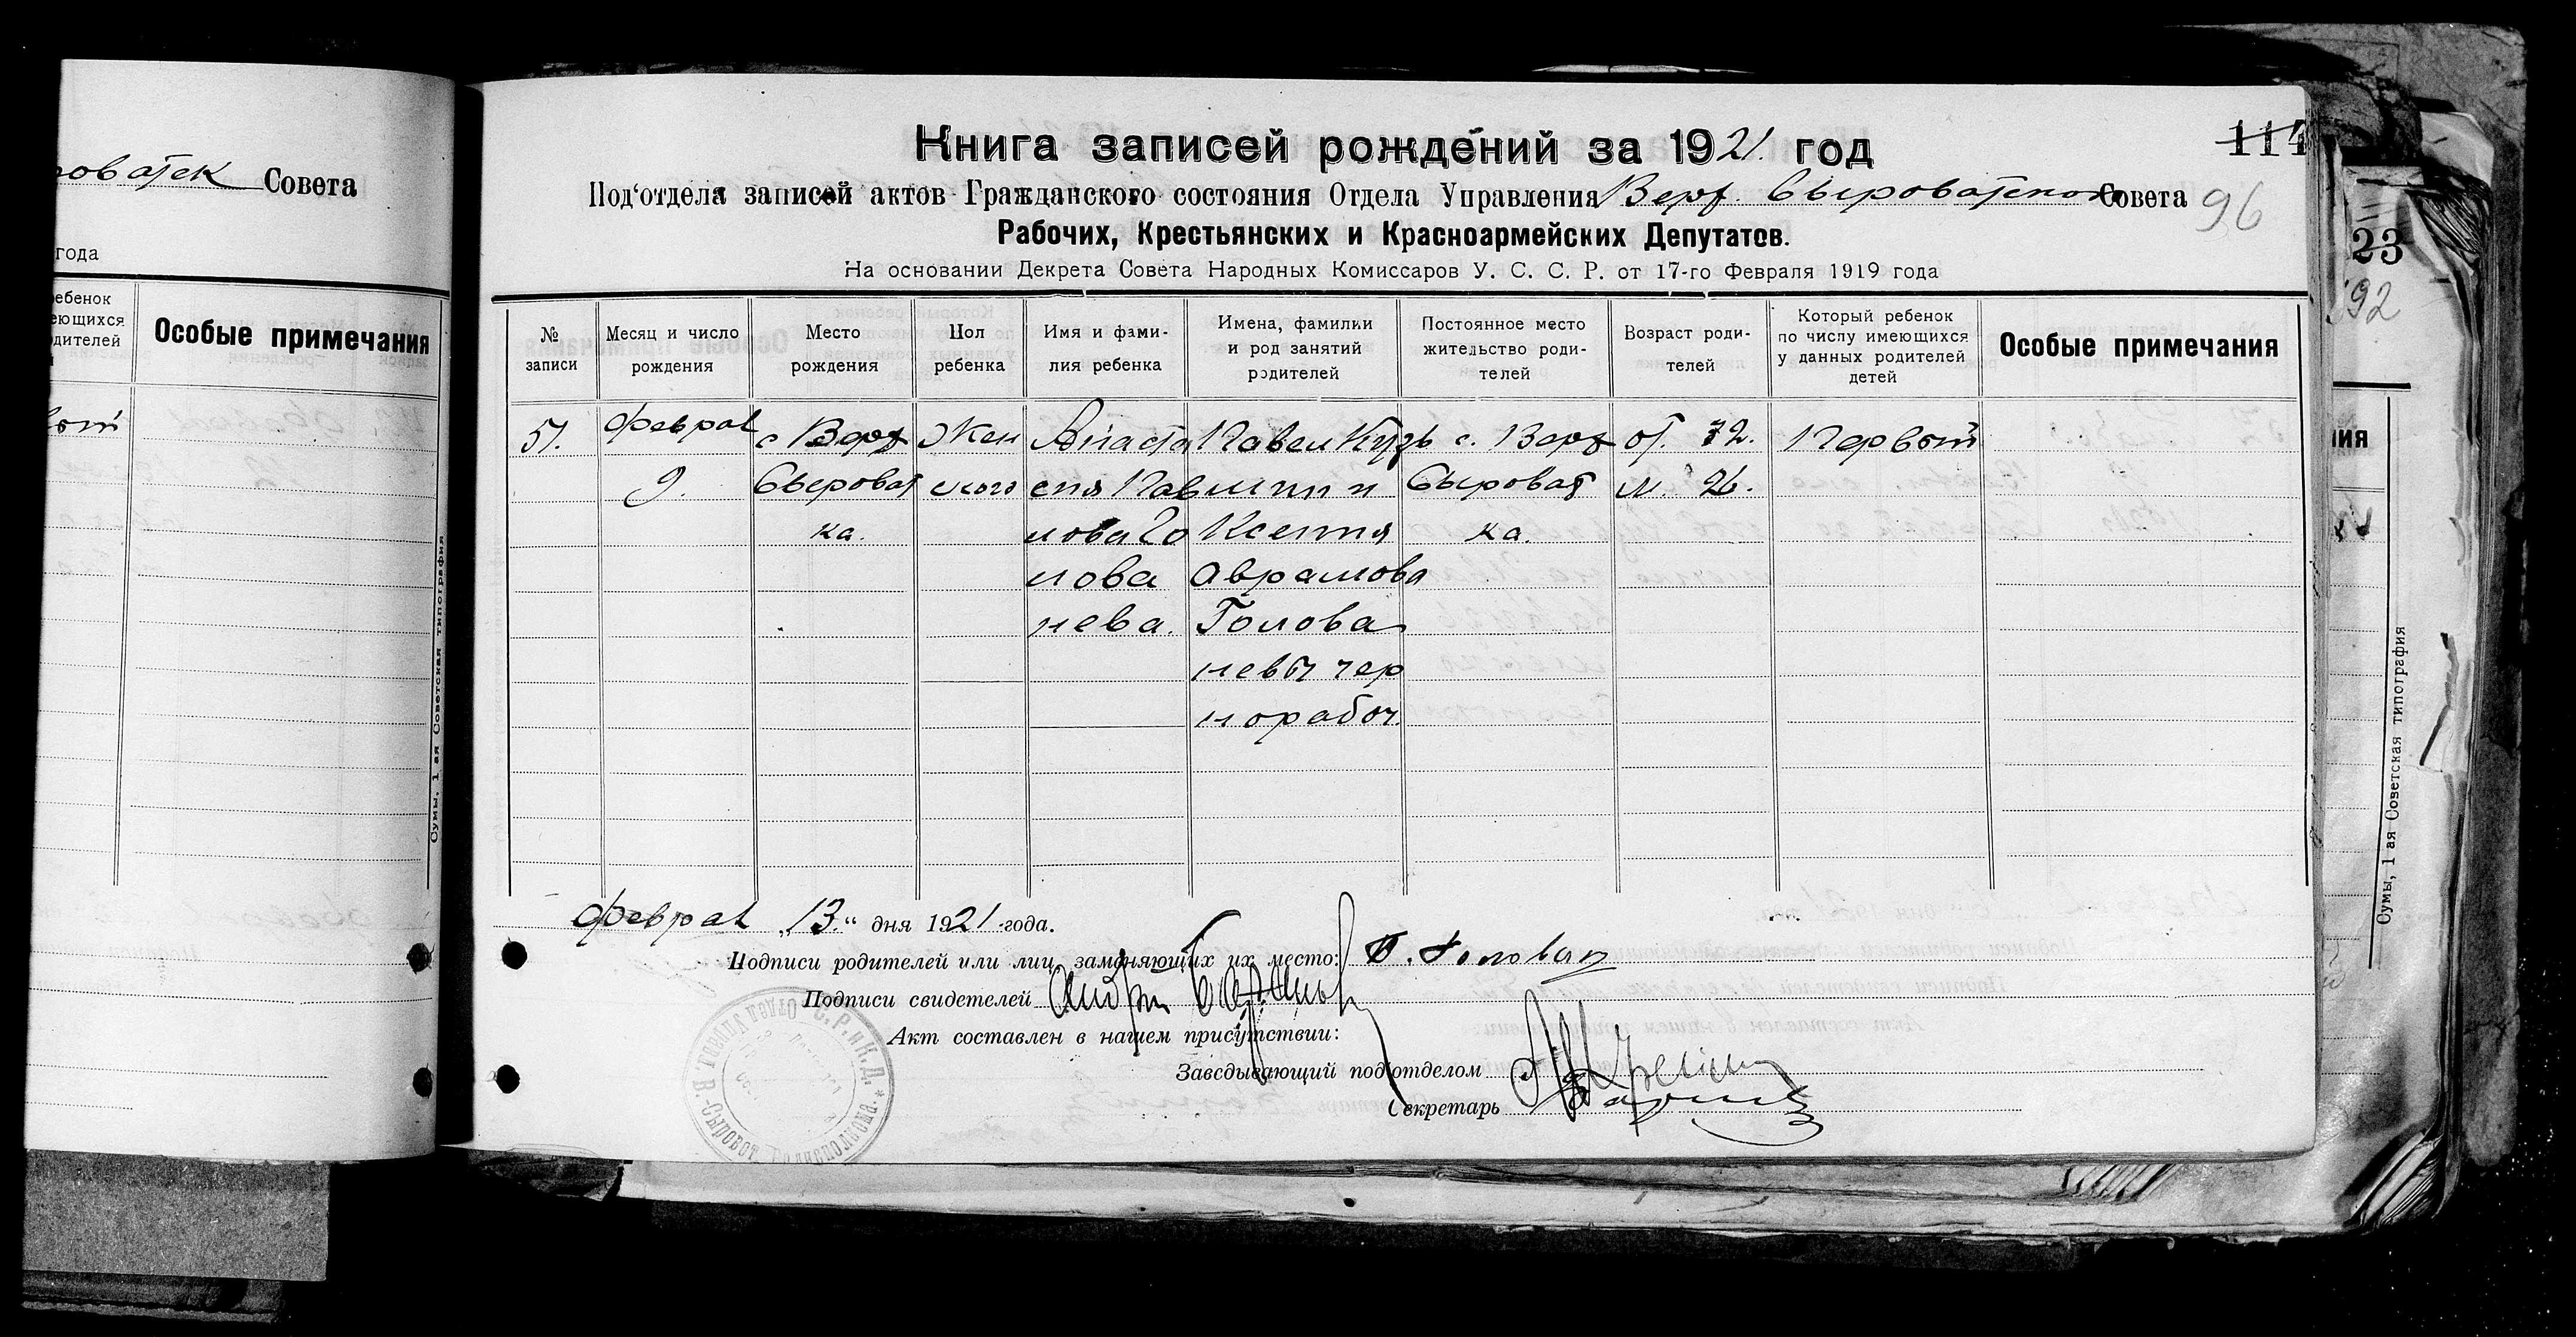 роватек Совета
года
ребенок
еющихся
дителей
Особые примечания
вый
Сумы, 1 ая Советская типография
Книга записей рождений за 1921. год
114
Под‘отдела записей актов Гражданского состояния Отдела Управления Верх. Сыроватского Совета
96
Рабочих, Крестьянских и Красноармейских Депутатов.
На основании Декрета Совета Народных Комиссаров У. С. С. Р. от 17-го Февраля 1919 года
№ записи
Месяц и число рождения
Место рождения
Пол ребенка
Имя и фами-
лия ребенка
Имена, фамилии
и род занятий
родителей
Постоянное место
жительство роди-
телей
Возраст роди-
телей
Который ребенок
по числу имеющихся
у данных родителей
детей
Особые примечания
51.
Феврал
9.
с Верх
Сыроват
ка.
Жен
ского
Анаста
сия Пав
лова Го
лова
нева.
Павел Кузь
мич и
Ксения
Аврамова
Голова
невы чер
норабоч.
с. Верх
Сыроват
ка.
от. 32.
м. 26.
Первый
Феврал „13.“ дня 1921 года.
Подписи родителей или лиц, заменяющих их место: П. Голован
Подписи свидетелей Андрей
Акт составлен в нашем присутствии:
Заведывающий под‘отделом
Секретарь
Отдел Управл. В.-Сыроват. Волисполкома * С. Р. и К. Д.
23
92
ния
Сумы, 1 ая Советская типография